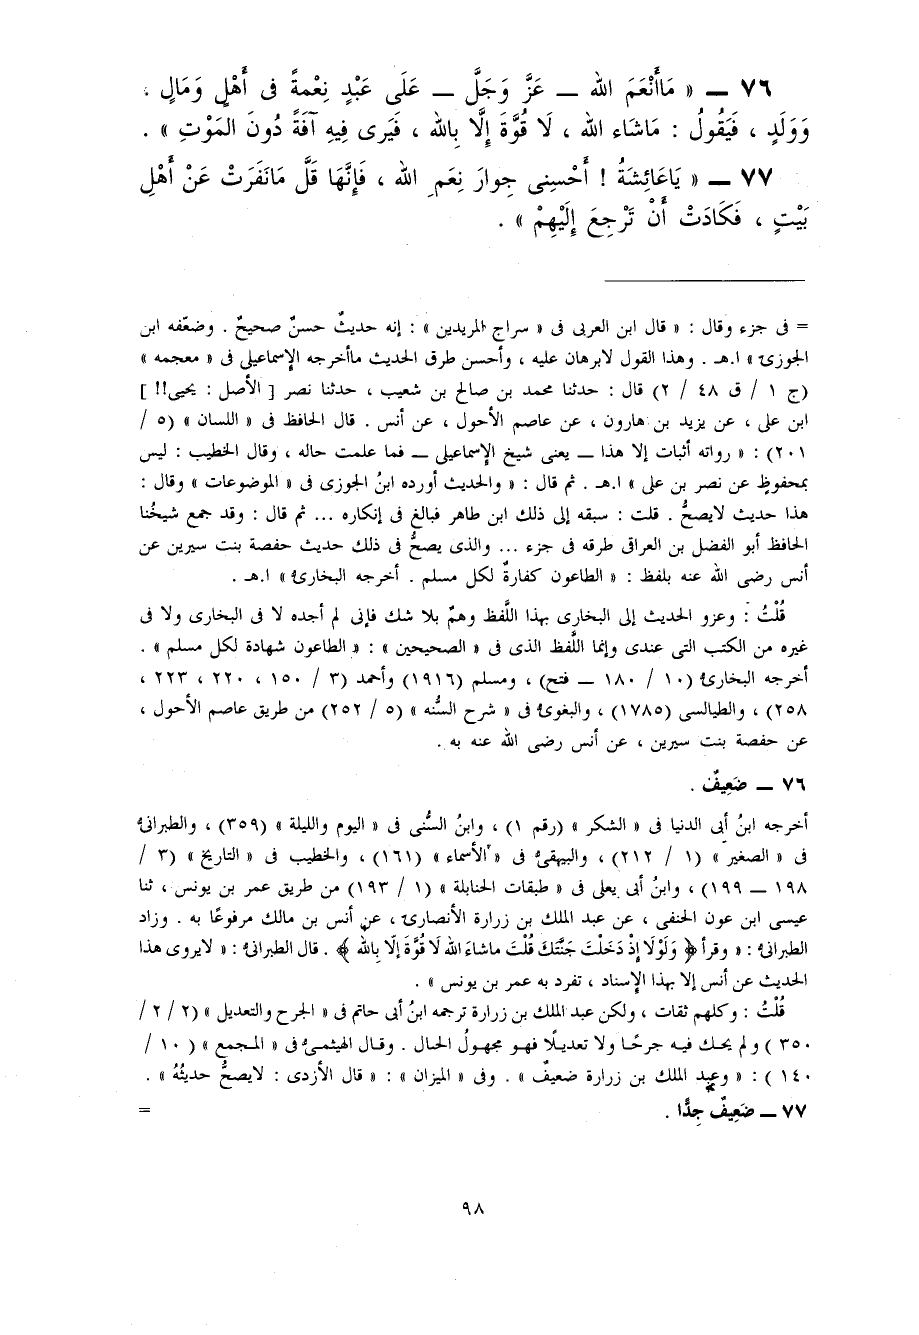 ٧٦ — « مَاأَنْعَمَ الله — عَزَّ وَجَلَّ — عَلَى عَبْدٍ نِعْمةً فى أَهْلٍ وَمَالٍ ،
وَوَلَدٍ ، فَيَقُولُ : مَاشَاء الله ، لَا قُوَّةَ إِلَّا بِالله ، فَيَرى فِيهِ آفَةً دُونَ المَوْتِ » .
٧٧ — « يَاعَائِشَةُ ! أَحْسِنِى جِوارَ نِعَمِ الله ، فَإِنَّهَا قَلَّ مَانَفَرَتْ عَنْ أَهْلِ
بَيْتٍ ، فَكَادَتْ أَنْ تَرْجِعَ إِلَيْهِمْ » .
= فى جزء وقال : « قال ابن العربى فى « سراج المريدين » : إنه حديثٌ حسنٌ صحيحٌ . وضعّفه ابن
الجوزىّ » ا.هـ . وهذا القول لابرهان عليه ، وأحسن طرق الحديث ماأخرجه الإسماعيلى فى « معجمه »
(ج ١ / ق ٤٨ / ٢) قال : حدثنا محمد بن صالح بن شعيب ، حدثنا نصر [ الأصل : يحيى!! ]
ابن على ، عن يزيد بن هارون ، عن عاصم الأحول ، عن أنس . قال الحافظ فى « اللسان » (٥ /
٢٠١) : « رواته أثبات إلا هذا — يعنى شيخ الإسماعيلى — فما علمت حاله ، وقال الخطيب : ليس
بمحفوظٍ عن نصر بن على » ا.هـ . ثم قال : « والحديث أورده ابنُ الجوزى فى « الموضوعات » وقال :
هذا حديث لايصحُّ . قلت : سبقه إلى ذلك ابن طاهر فبالغ فى إنكاره ... ثم قال : وقد جمع شيخُنا
الحافظ أبو الفضل بن العراقى طرقه فى جزء ... والذى يصحُّ فى ذلك حديث حفصة بنت سيرين عن
أنس رضى الله عنه بلفظ : « الطاعون كفارةٌ لكل مسلم . أخرجه البخارىُّ » ا.هـ .
قُلْتُ : وعزو الحديث إلى البخارى بهذا اللَّفظ وهمٌ بلا شك فإنى لم أجده لا فى البخارى ولا فى
غيره من الكتب التى عندى وإنما اللَّفظ الذى فى « الصحيحين » : « الطاعون شهادة لكل مسلم » .
أخرجه البخارىُّ (١٠ / ١٨٠ — فتح) ، ومسلم (١٩١٦) وأحمد (٣ / ١٥٠ ، ٢٢٠ ، ٢٢٣ ،
٢٥٨) ، والطيالسى (١٧٨٥) ، والبغوىُّ فى « شرح السُّنه » (٥ / ٢٥٢) من طريق عاصم الأحول ،
عن حفصة بنت سيرين ، عن أنس رضى الله عنه به .
٧٦ — ضَعِيفٌ .
أخرجه ابنُ أبى الدنيا فى « الشكر » (رقم ١) ، وابنُ السُّنى فى « اليوم والليلة » (٣٥٩) ، والطبرانىُّ
فى « الصغير » (١ / ٢١٢) ، والبيهقىُّ فى « الأسماء » (١٦١) ، والخطيب فى « التاريخ » (٣ /
١٩٨ — ١٩٩) ، وابنُ أبى يعلى فى « طبقات الحنابلة » (١ / ١٩٣) من طريق عمر بن يونس ، ثنا
عيسى ابن عون الحنفى ، عن عبد الملك بن زرارة الأنصارى ، عن أنس بن مالك مرفوعًا به . وزاد
الطبرانىُّ : « وقرأ ﴿ وَلَوْلَا إِذْ دَخَلْتَ جَنَّتَكَ قُلْتَ مَاشَاءَ الله لَا قُوَّةَ إِلَّا بِالله ﴾ . قال الطبرانىُّ : « لايروى هذا
الحديث عن أنس إلا بهذا الإسناد ، تفرد به عمر بن يونس » .
قُلْتُ : وكلهم ثقات ، ولكن عبد الملك بن زرارة ترجمه ابنُ أبى حاتم فى « الجرح والتعديل » (٢ / ٢ /
٣٥٠) ولم يحك فيه جرحًا ولا تعديلًا فهو مجهولُ الحال . وقال الهيثمىُّ فى « المجمع » ( ١٠ /
١٤٠ ) : « وعبد الملك بن زرارة ضعيفٌ » . وفى « الميزان » : « قال الأزدى : لايصحُّ حديثُهُ » .
٧٧ — ضَعِيفٌ جِدًّا . =
٩٨